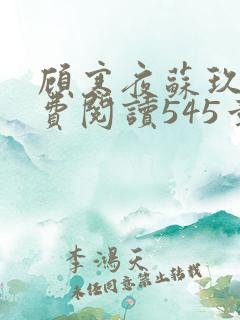 顧寒夜蘇玖
費閱讀545
李鴻天
未經同意禁止轉載